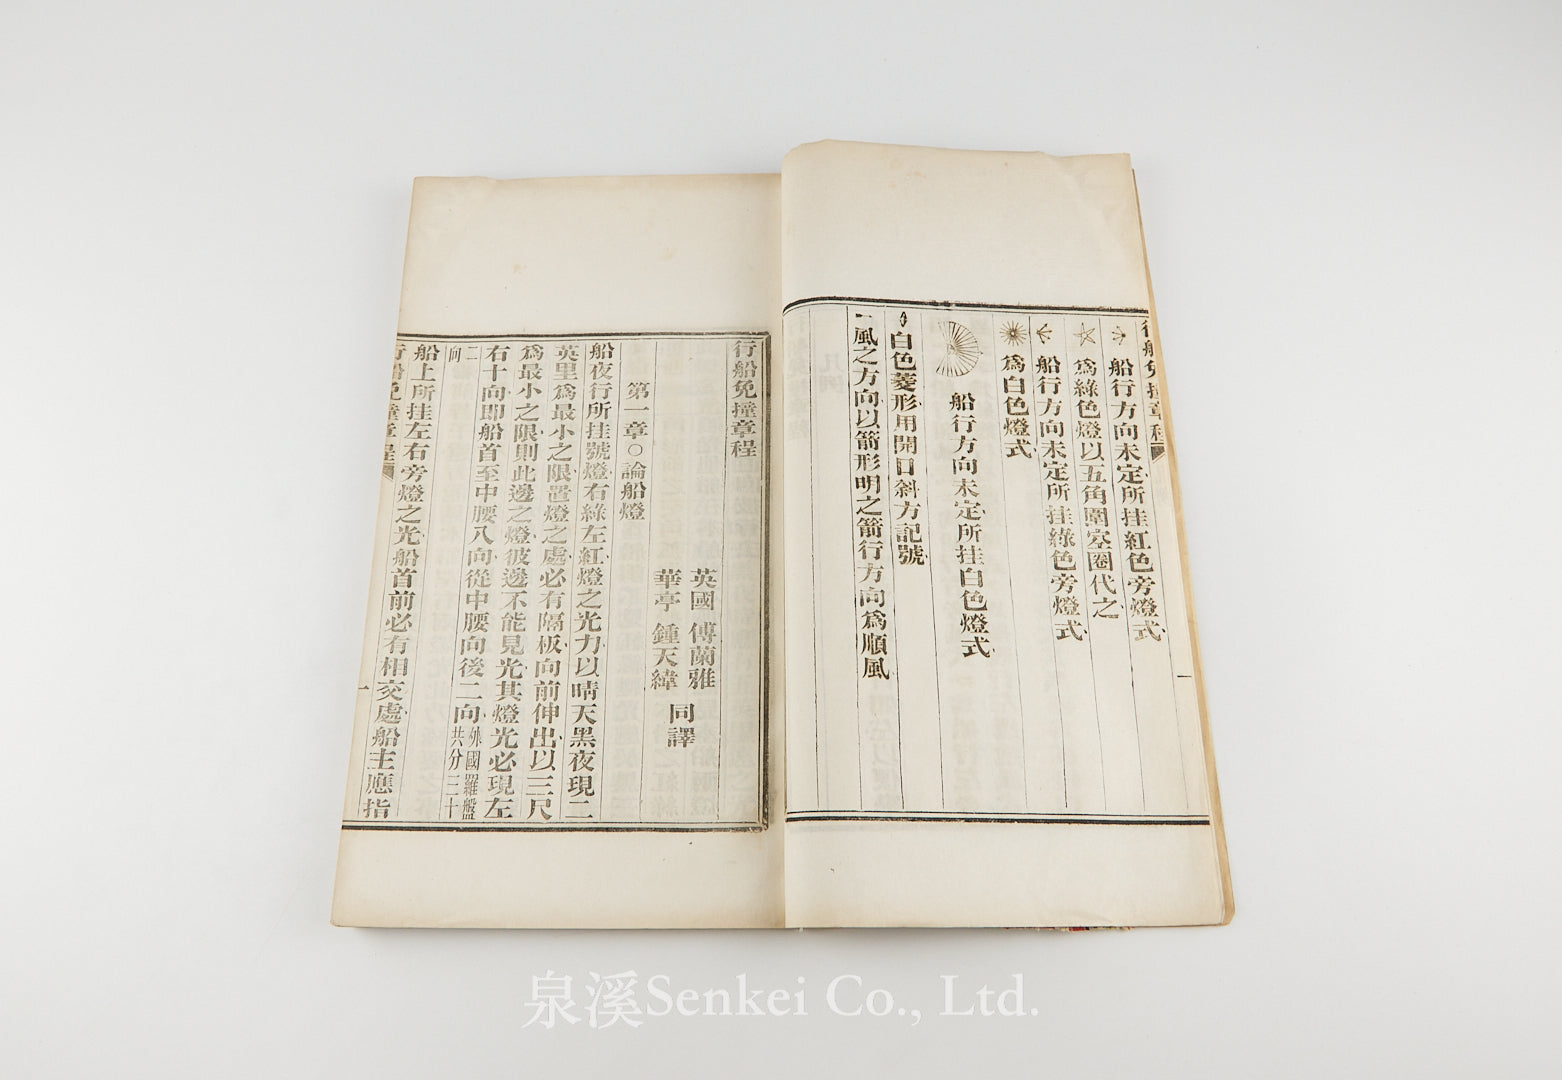 船行方向未定所挂紅色旁燈式
爲綠色燈以五角圍空圈代之
船行方向未定所挂綠色旁燈式
爲白色燈式
船行方向未定所挂白色燈式
白色菱形用開口斜方記號
一風之方向以箭形明之箭行方向爲順風
行船免撞章程
一
行船免撞章程
英國 傅蘭雅
華亭 鍾天緯
同譯
第一章○論船燈
船夜行所挂號燈右綠左紅燈之光力以晴天黑夜現二
英里爲最小之限置燈之處必有隔板向前伸出以三尺
爲最小之限則此邊之燈彼邊不能見光其燈光必現左
右十向卽船首至中腰八向從中腰向後二向外國羅盤共分三十
二向
船上所挂左右旁燈之光船首前必有相交處船主應指
行船免撞章程
一
泉溪Senkei Co., Ltd.